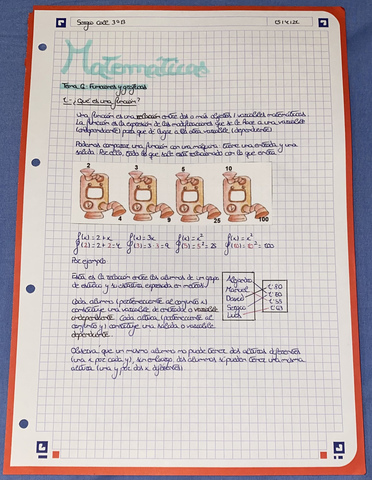 Sergio 3º B
Matemáticas
Tema 6: Funciones y gráficas
1.- ¿Qué es una función?
Una función es una relación entre dos o más objetos (variables matemáticas).
La función es la expresión de las modificaciones que se le hace a una variable
(independiente) para que de lugar a la otra variable (dependiente)
Podemos comparar una función con una máquina: tiene una entrada y una
salida. Por ello, todo lo que sale está relacionado con lo que entra.
2 3 5 10
4 9 25 100
f(x) = 2+x f(x) = 3x f(x) = x² f(x) = x²
f(2) = 2+2 = 4 f(3) = 3·3 = 9 f(5) = 5² = 25 f(10) = 10² = 100
Por ejemplo
Esta es la relación entre dos alumnos de un grupo
de estudio y su estatura expresada en metros
Cada alumno (perteneciente al conjunto x)
constituye una variable de entrada o variable
independiente. Cada altura (perteneciente al
conjunto y) constituye una salida o variable
dependiente.
Alejandro
Manuel
David
Sergio
Luis
Observa que un mismo alumno no puede tener dos alturas diferentes
(una x por cada y), sin embargo dos alumnos si pueden tener una misma
altura (una y por dos x diferentes)